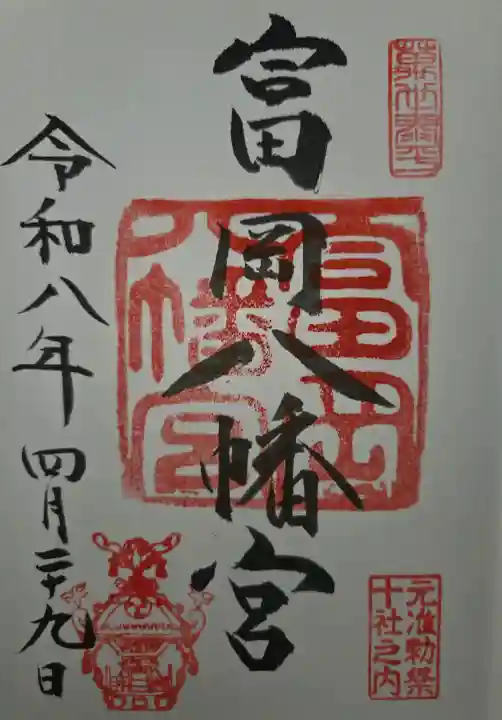 富岡八幡宮
元准勅祭
十社之内
令和八年四月二十九日